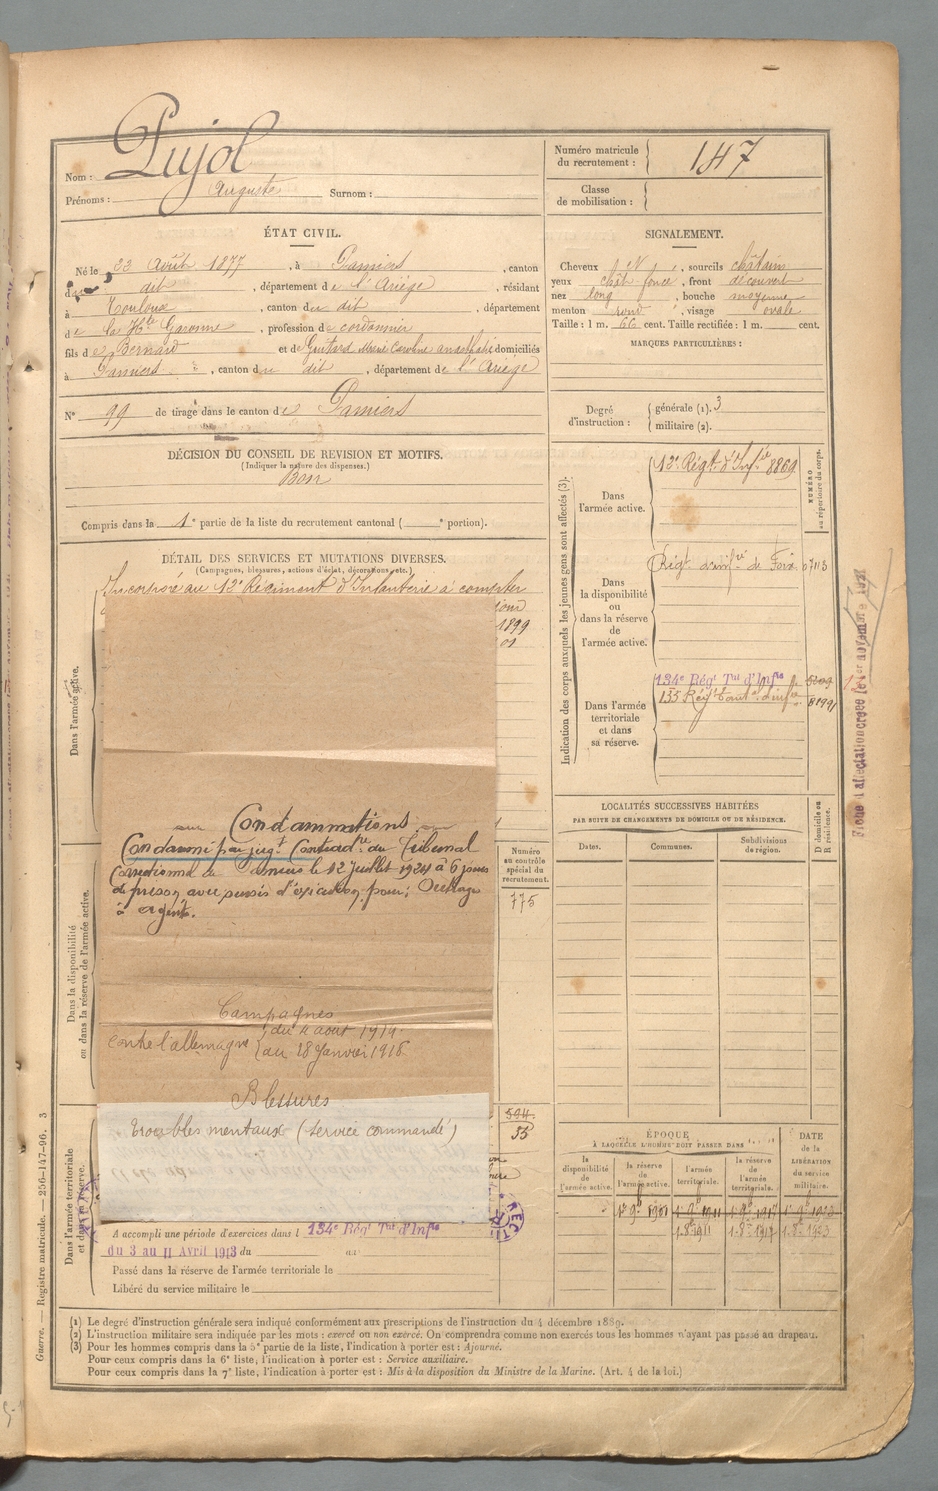 Pujol
Nom :
Prénoms : Auguste Surnom :
Numéro matricule du recrutement : 147
Classe de mobilisation :
ÉTAT CIVIL.
Né le 23 Août 1877, à Pamiers, canton
du dit, département de l'Ariège, résidant
à Toulouse, canton du dit, département
de la Hte Garonne, profession de cordonnier
fils de Bernard et de Guitard Marie Caroline domiciliés
à Pamiers, canton du dit, département de l'Ariège
N° 99 de tirage dans le canton de Pamiers
SIGNALEMENT.
Cheveux , sourcils châtain
yeux chât foncé, front découvert
nez long, bouche moyenne
menton rond, visage ovale
Taille : 1 m. 66 cent. Taille rectifiée : 1 m. cent.
MARQUES PARTICULIÈRES :
Degré d'instruction : générale (1). 3
militaire (2).
DÉCISION DU CONSEIL DE REVISION ET MOTIFS.
(Indiquer la nature des dispenses.)
Bon
Compris dans la 1e partie de la liste du recrutement cantonal ( e portion).
DÉTAIL DES SERVICES ET MUTATIONS DIVERSES.
(Campagnes, blessures, actions d'éclat, décorations, etc.)
Incorporé au 12e Régiment d'Infanterie à compter
1899
Dans l'armée active.
Condamnations
Condamné par jugt Contradre du Tribunal
Correctionnel de le 12 Juillet 1924 à 6 jours
de prison avec sursis d'exécution pour : Outrages
à agent.
Campagnes
contre l'allemagne { du 4 août 1914
au 28 Janvier 1916
Blessures
Troubles mentaux (service commandé)
Dans la disponibilité
ou dans la réserve de l'armée active.
Numéro
au contrôle
spécial du
recrutement.
775
594
53
Dans l'armée territoriale
et dans sa réserve.
A accompli une période d'exercices dans l 134e Régt Tal d'Infie
du 3 au 11 Avril 1913 du au
Passé dans la réserve de l'armée territoriale le
Libéré du service militaire le
Indication des corps auxquels les jeunes gens sont affectés (3).
NUMÉRO
au répertoire du corps.
Dans
l'armée active.
12e Régt d'Infie 8869
Dans
la disponibilité
ou
dans la réserve
de
l'armée active.
Régt d'infie de Foix 07113
Dans l'armée
territoriale
et dans
sa réserve.
134e Régt Tal d'Infie
135 Régt d'infie
Fiche d'affectation créée le 1er novembre
LOCALITÉS SUCCESSIVES HABITÉES
PAR SUITE DE CHANGEMENTS DE DOMICILE OU DE RÉSIDENCE.
Dates.
Communes.
Subdivisions
de région.
D domicile ou
R résidence.
ÉPOQUE
À LAQUELLE L'HOMME DOIT PASSER DANS
DATE
de la
LIBÉRATION
du service
militaire.
la
disponibilité
de l'armée active.
la réserve
de
l'armée active.
l'armée
territoriale.
la réserve
de
l'armée
territoriale.
1er 9bre 1901 1er 9bre 1911 1er 9bre 1917 1er 9bre 1923
1-8-1911 1-8-1917 1-8-1923
(1) Le degré d'instruction générale sera indiqué conformément aux prescriptions de l'instruction du 4 décembre 1889.
(2) L'instruction militaire sera indiquée par les mots : exercé ou non exercé. On comprendra comme non exercés tous les hommes n'ayant pas passé au drapeau.
(3) Pour les hommes compris dans la 5e partie de la liste, l'indication à porter est : Ajourné.
Pour ceux compris dans la 6e liste, l'indication à porter est : Service auxiliaire.
Pour ceux compris dans la 7e liste, l'indication à porter est : Mis à la disposition du Ministre de la Marine. (Art. 4 de la loi.)
Guerre. — Registre matricule. — 256-147-96. 3